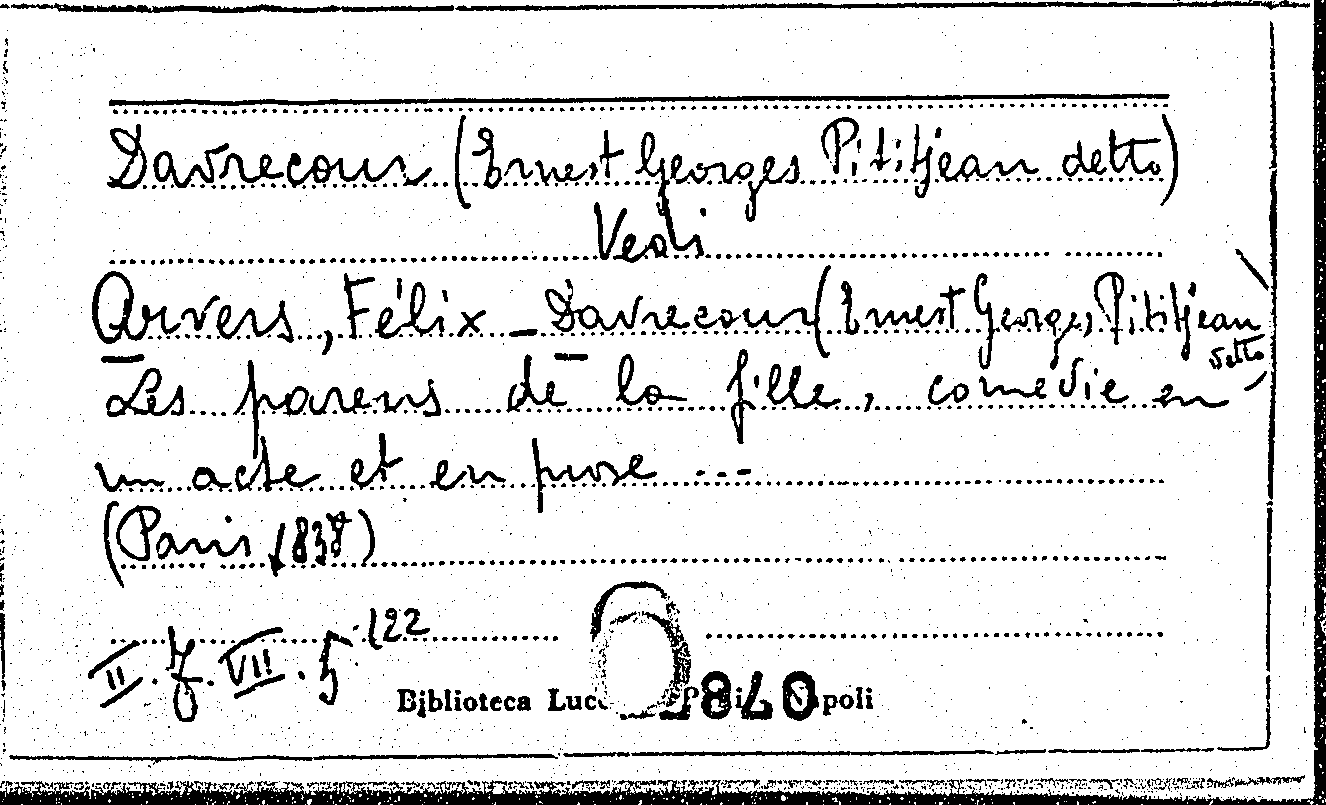 Davrecour (Ernest Georges Pititjean detto)
Vedi
Arvers, Félix - Davrecour (Ernest Georges Pititjean detto)
Les parens de la fille, comedie en
un acte et en prose ...
(Paris 1838)
II. f. VII. 5 122
Biblioteca Napoli